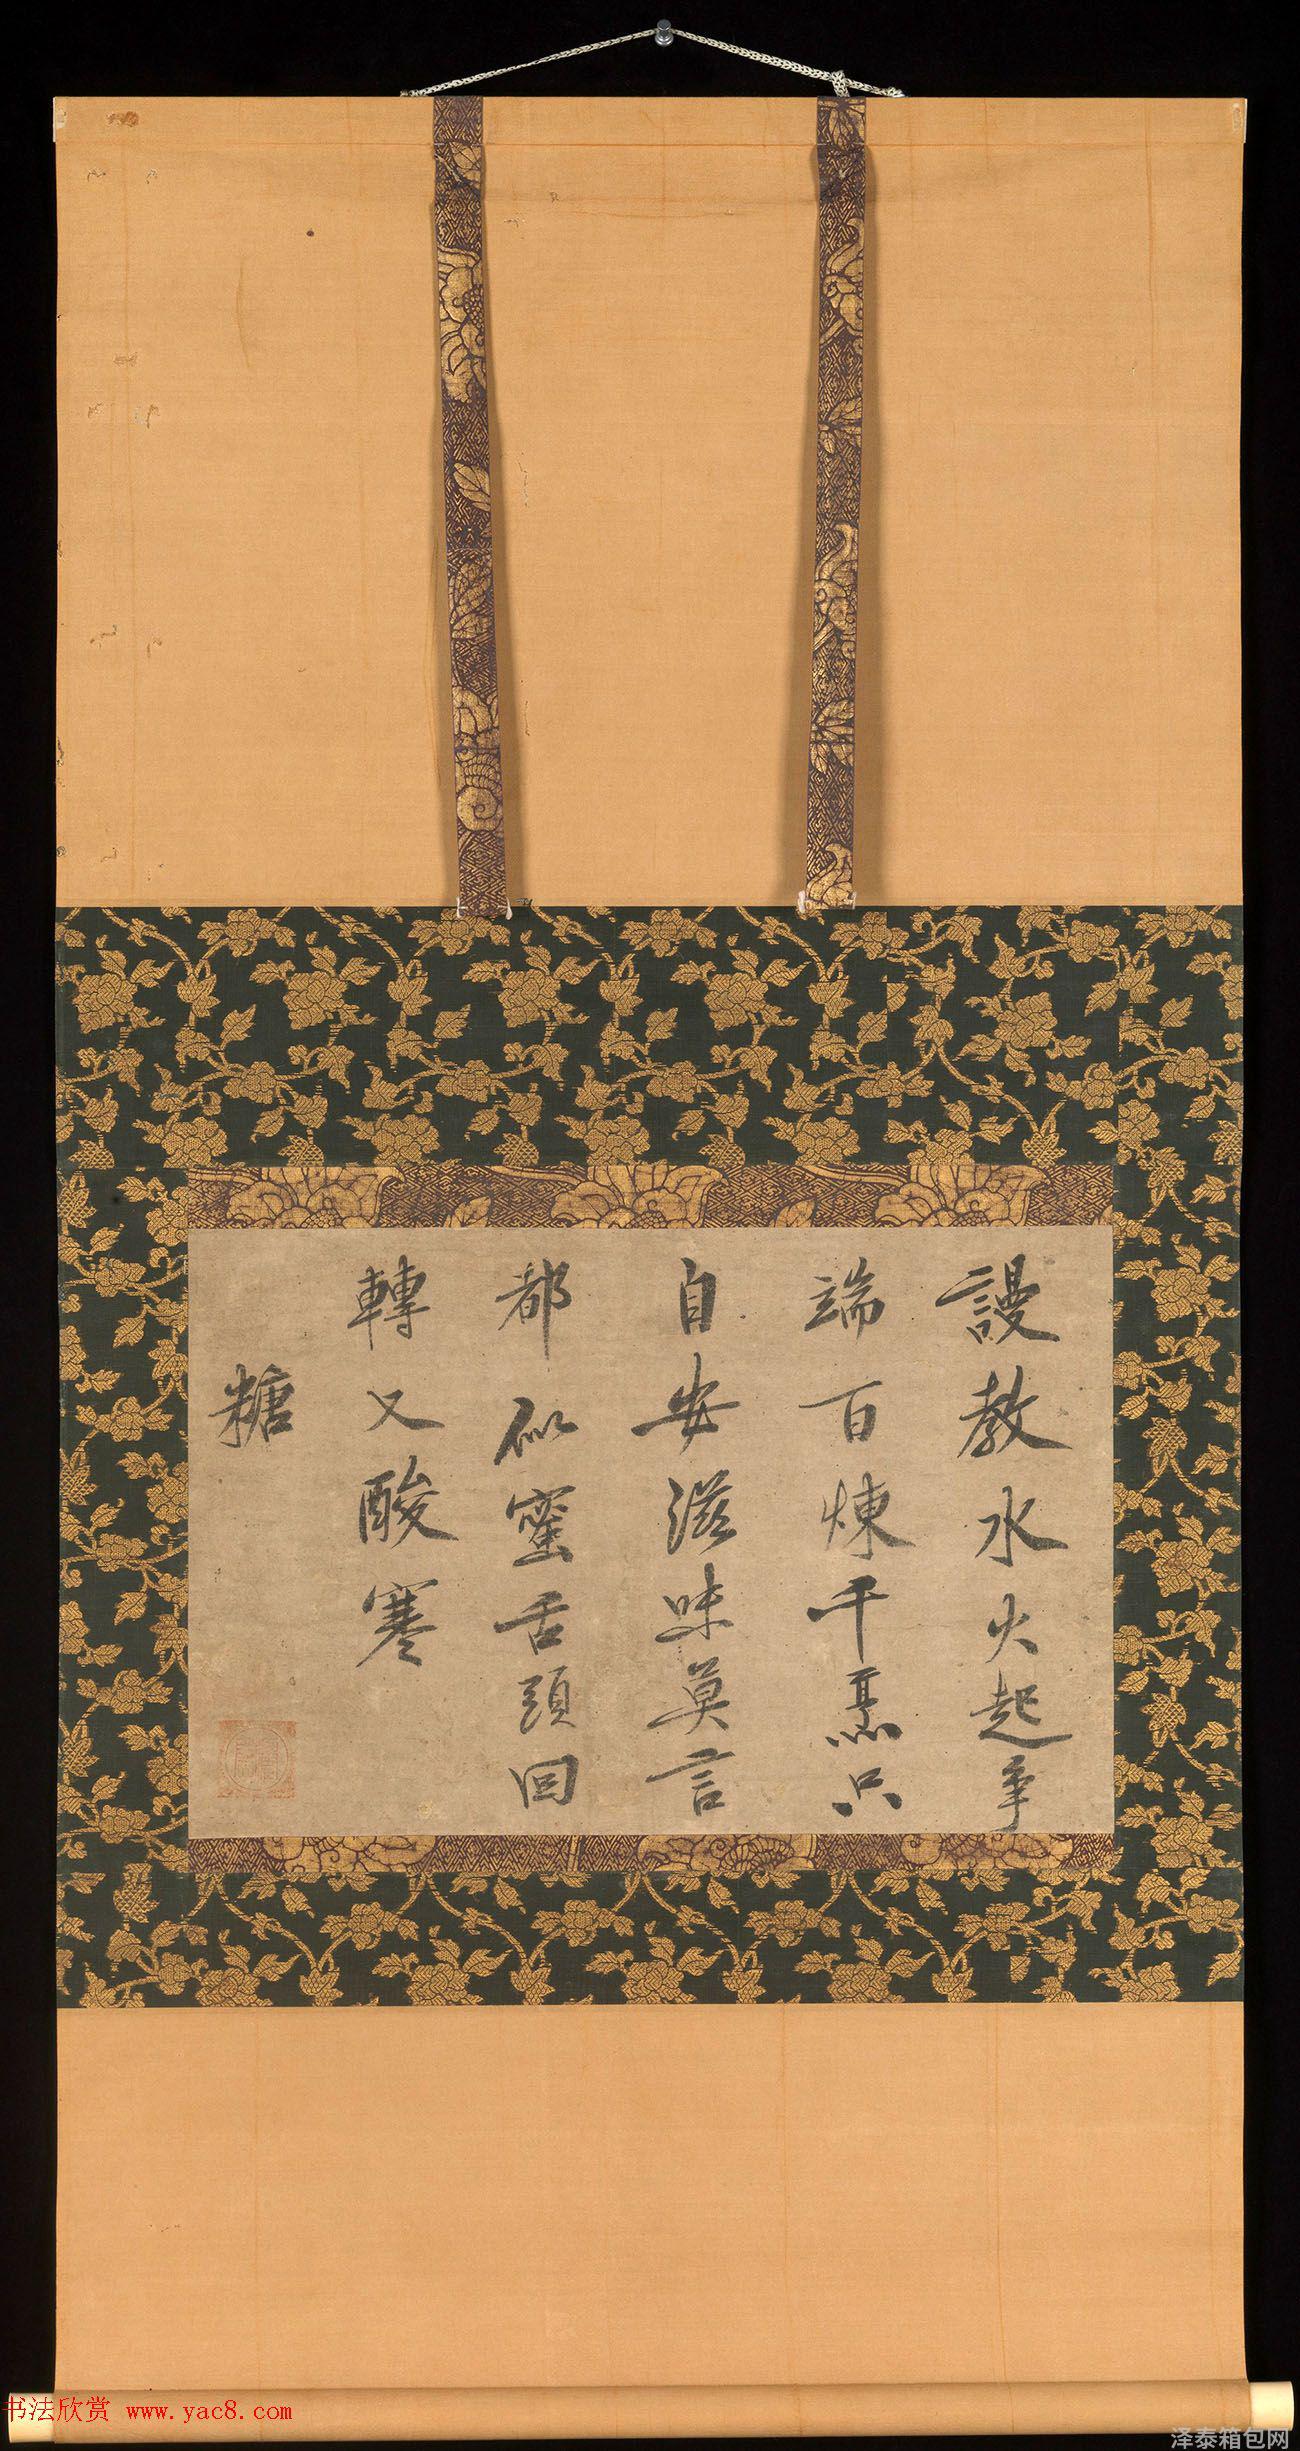 謾教水火起爭
端百煉千烹只
自安滋味莫言
都似蜜舌頭回
轉又酸寒
糖
书法欣赏 www.yac8.com
泽泰箱包网